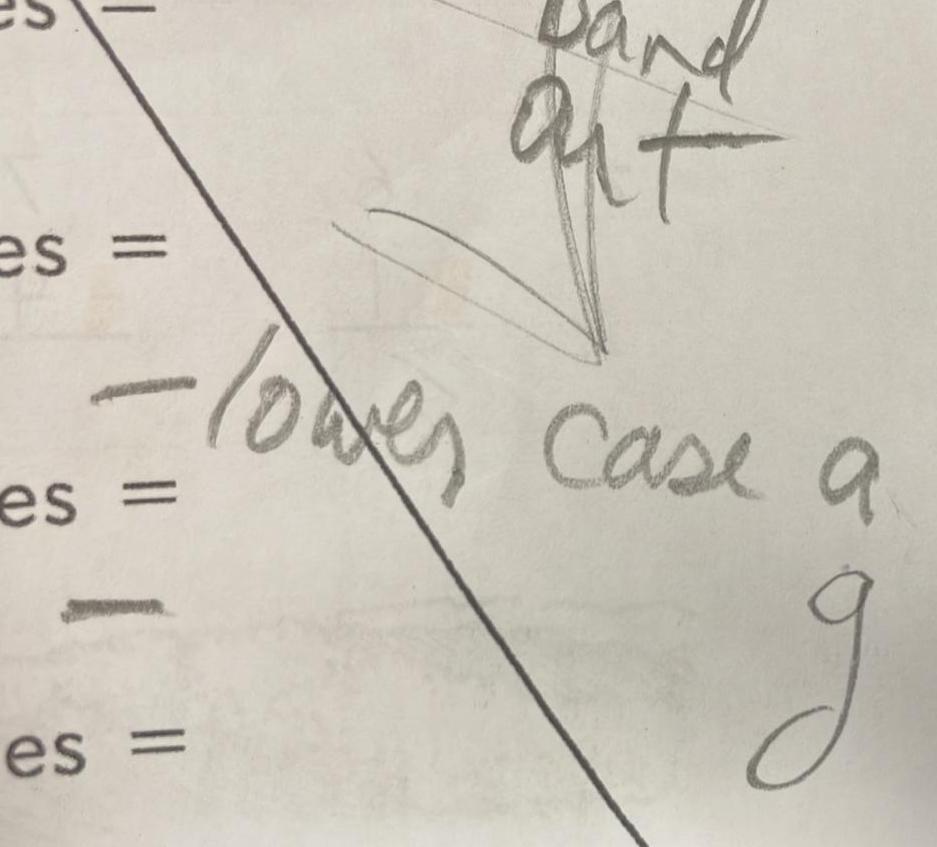 es =
band
art
es =
— lower case a
es =
g
—
es =